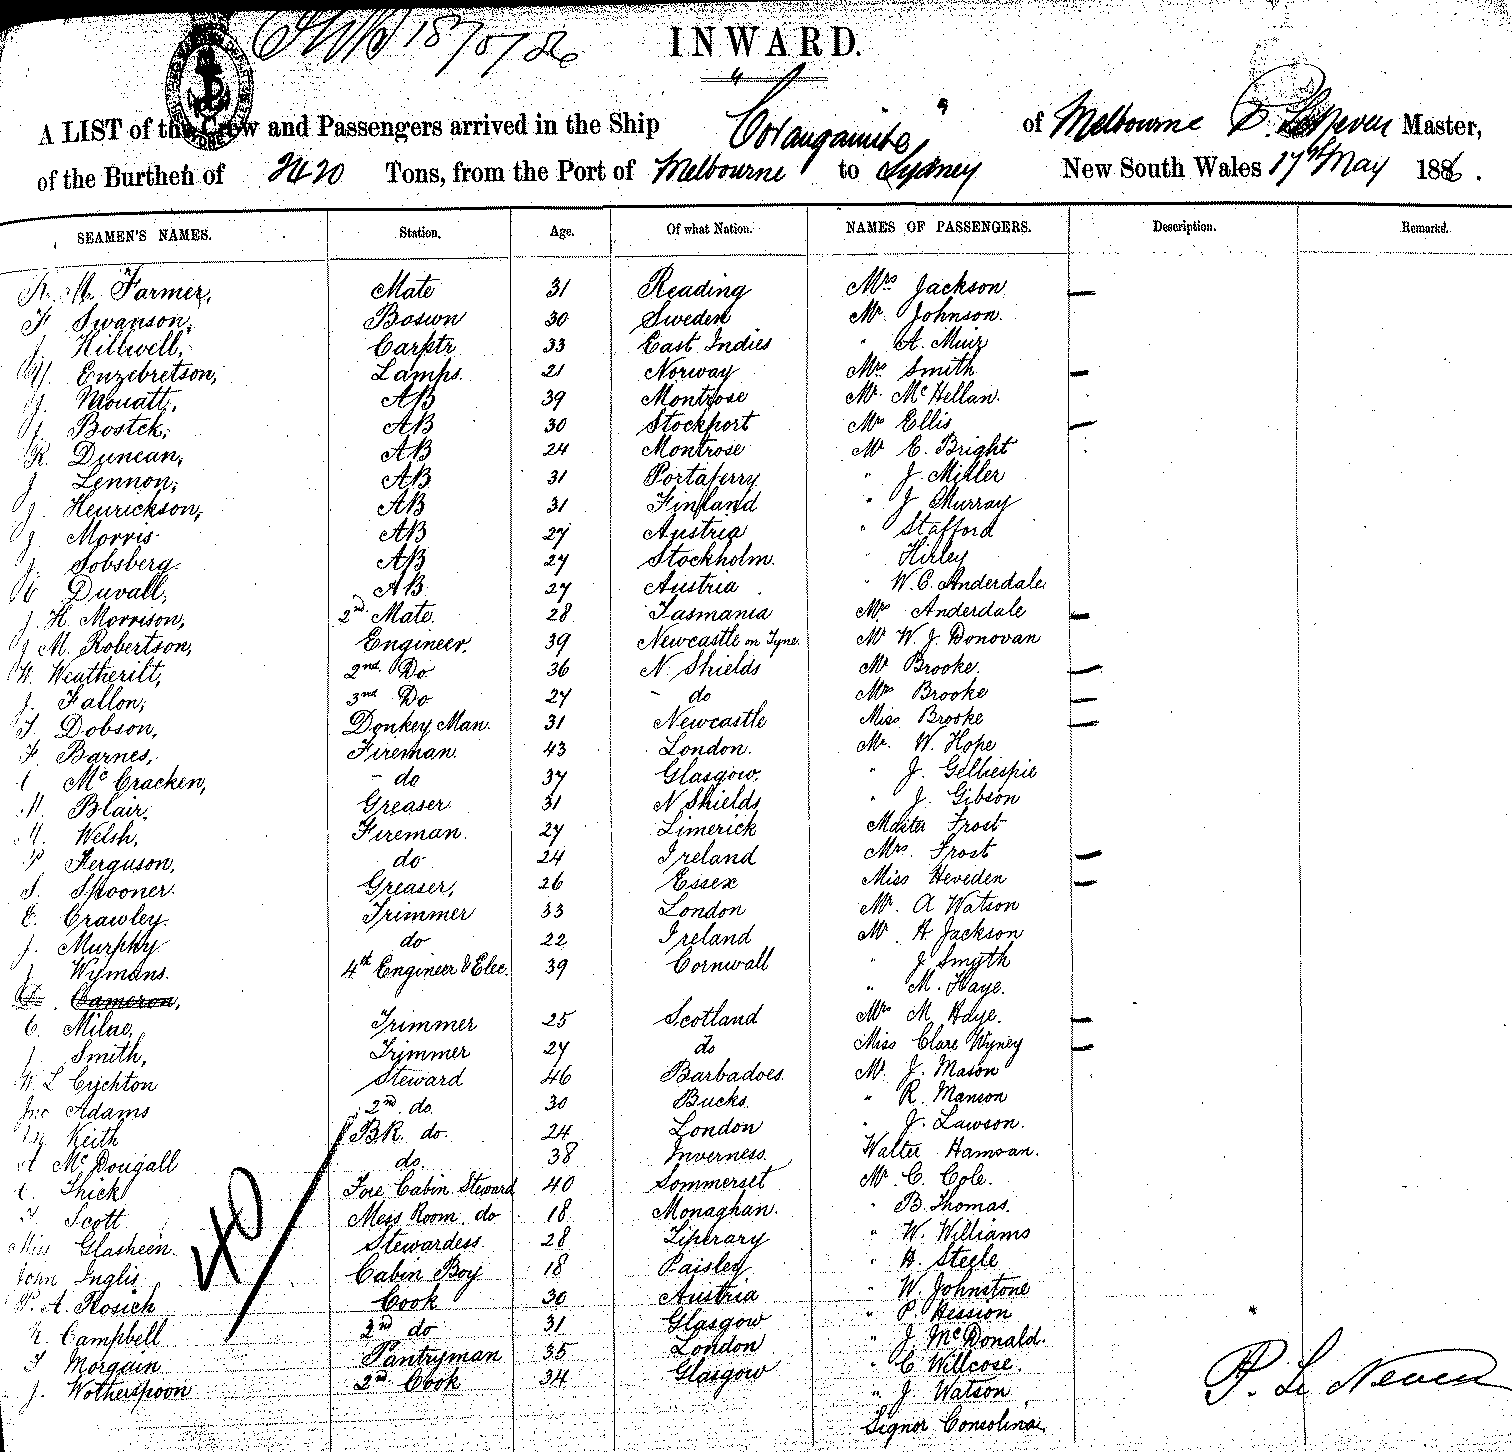 18/5/86
INWARD.
A LIST of the Crew and Passengers arrived in the Ship "Corangamite" of Melbourne P. Le Neven Master,
of the Burthen of 2420 Tons, from the Port of Melbourne to Sydney New South Wales 17th May 1886.
SEAMEN'S NAMES. Station. Age. Of what Nation. NAMES OF PASSENGERS. Description. Remarks.
Farmer, Mate 31 Reading Mrs Jackson —
F Swanson, Boswn 30 Sweden Mr Johnson.
J Hilliwell, Carptr 33 East Indies " A. Muir
Enzebretson, Lamps 21 Norway Mrs Smith —
J. Mouatt, AB 39 Montrose Mr. McHellan.
J. Bostck, AB 30 Stockport Mrs Ellis —
R. Duncan, AB 24 Montrose Mr E. Bright
J Lennon, AB 31 Portaferry " J. Miller
J. Henrickson, AB 31 Finland " J Murray
J Morris AB 27 Austria " Stafford
J Sobsberg AB 27 Stockholm. " Hirley
Duvall, AB 27 Austria " W. C. Anderdale.
J. H. Morrison, 2nd Mate. 28 Tasmania Mrs Anderdale —
J M. Robertson, Engineer. 39 Newcastle on Tyne. Mr W. J. Donovan
W. Weatherilt, 2nd Do 36 N. Shields Mr Brooke. —
J. Fallon, 3rd Do 27 - do Mrs Brooke —
T. Dobson, Donkey Man. 31 Newcastle Miss Brooke —
F. Barnes, Fireman. 43 London. Mr. W. Hope
McCracken, - do 37 Glasgow. " J. Gelliespie
Blair, Greaser 31 N Shields " J. Gibson
Welsh, Fireman. 27 Limerick Master Frost
P Ferguson, do 24 Ireland Mrs. Frost —
S. Spooner. Greaser, 26 Essex Miss Heveden —
C. Crawley. Trimmer 33 London Mr. A Watson
J. Murphy do 22 Ireland Mr. H Jackson
J Wymans. 4th Engineer & Elec. 39 Cornwall " J Smyth
Cameron, " M. Haye.
C. Milne, Trimmer 25 Scotland Mrs M Haye. —
J. Smith, Trimmer 27 do Miss Clare Wyney —
W. L Crichton Steward 46 Barbadoes. Mr. J. Mason
Jno Adams 2nd do 30 Bucks " R. Manson
Wm Keith BR. do. 24 London " J. Lawson.
A McDougall do. 38 Inverness. Walter Hamoan.
Thick Fore Cabin Steward 40 Sommerset Mr. C. Cole.
T Scott Mess Room do 18 Monaghan. " B. Thomas.
Miss Glasheen. Stewardess 28 Tiperary " W. Williams
John Inglis Cabin Boy 18 Paisley " H. Steele
P. A. Kosich Cook 30 Austria " W. Johnstone
Campbell 2nd do 31 Glasgow " P. Hession
T Morquin Pantryman 35 London " J. McDonald.
J. Wotherspoon 2nd Cook 34 Glasgow " C Willcose.
" J. Watson
Signor Consolina
40
P. Le Neven